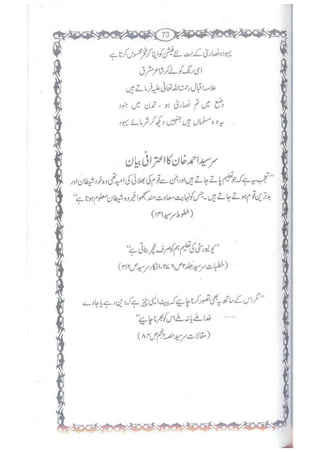 73
یہود و نصاریٰ کے نت نئے فیشن کو اپنا کر فخر محسوس کرتا ہے
اسی رنگ کو لے کر شاعر مشرق
علامہ اقبال رحمۃ اللہ تعالیٰ علیہ فرماتے ہیں
وضع میں تم نصاریٰ ہو ، تمدن میں ہنود
یہ وہ مسلماں ہیں جنہیں دیکھ کر شرمائے یہود
سرسید احمد خان کا اعترافی بیان
”تعجب یہ ہے کہ جو تعلیم پاتے جاتے ہیں اور جن سے قوم کی بھلائی کی امید تھی وہ خود شیطان اور
بدترین قوم ہوتے جاتے ہیں۔ جس کو نہایت سعادت مند سمجھو اخیر وہ شیطان معلوم ہوتا ہے“
(خطوط سرسید ص ۱۳۱)
”یونیورسٹی کی تعلیم ہم کو صرف خچر بناتی ہے“
(خطبات سرسید جلد ۲ ص ۲۷۹، افکار سرسید ص ۲۱۲)
”مگر اس کے ساتھ یہ بھی تصور کرنا چاہیے کہ پیٹ ایسی چیز ہے کہ دین رہے یا جاوے
خدا ملے یا نہ ملے اس کو بھرنا چاہیے“
(مقالات سرسید حصہ پنجم ص ۸۳)